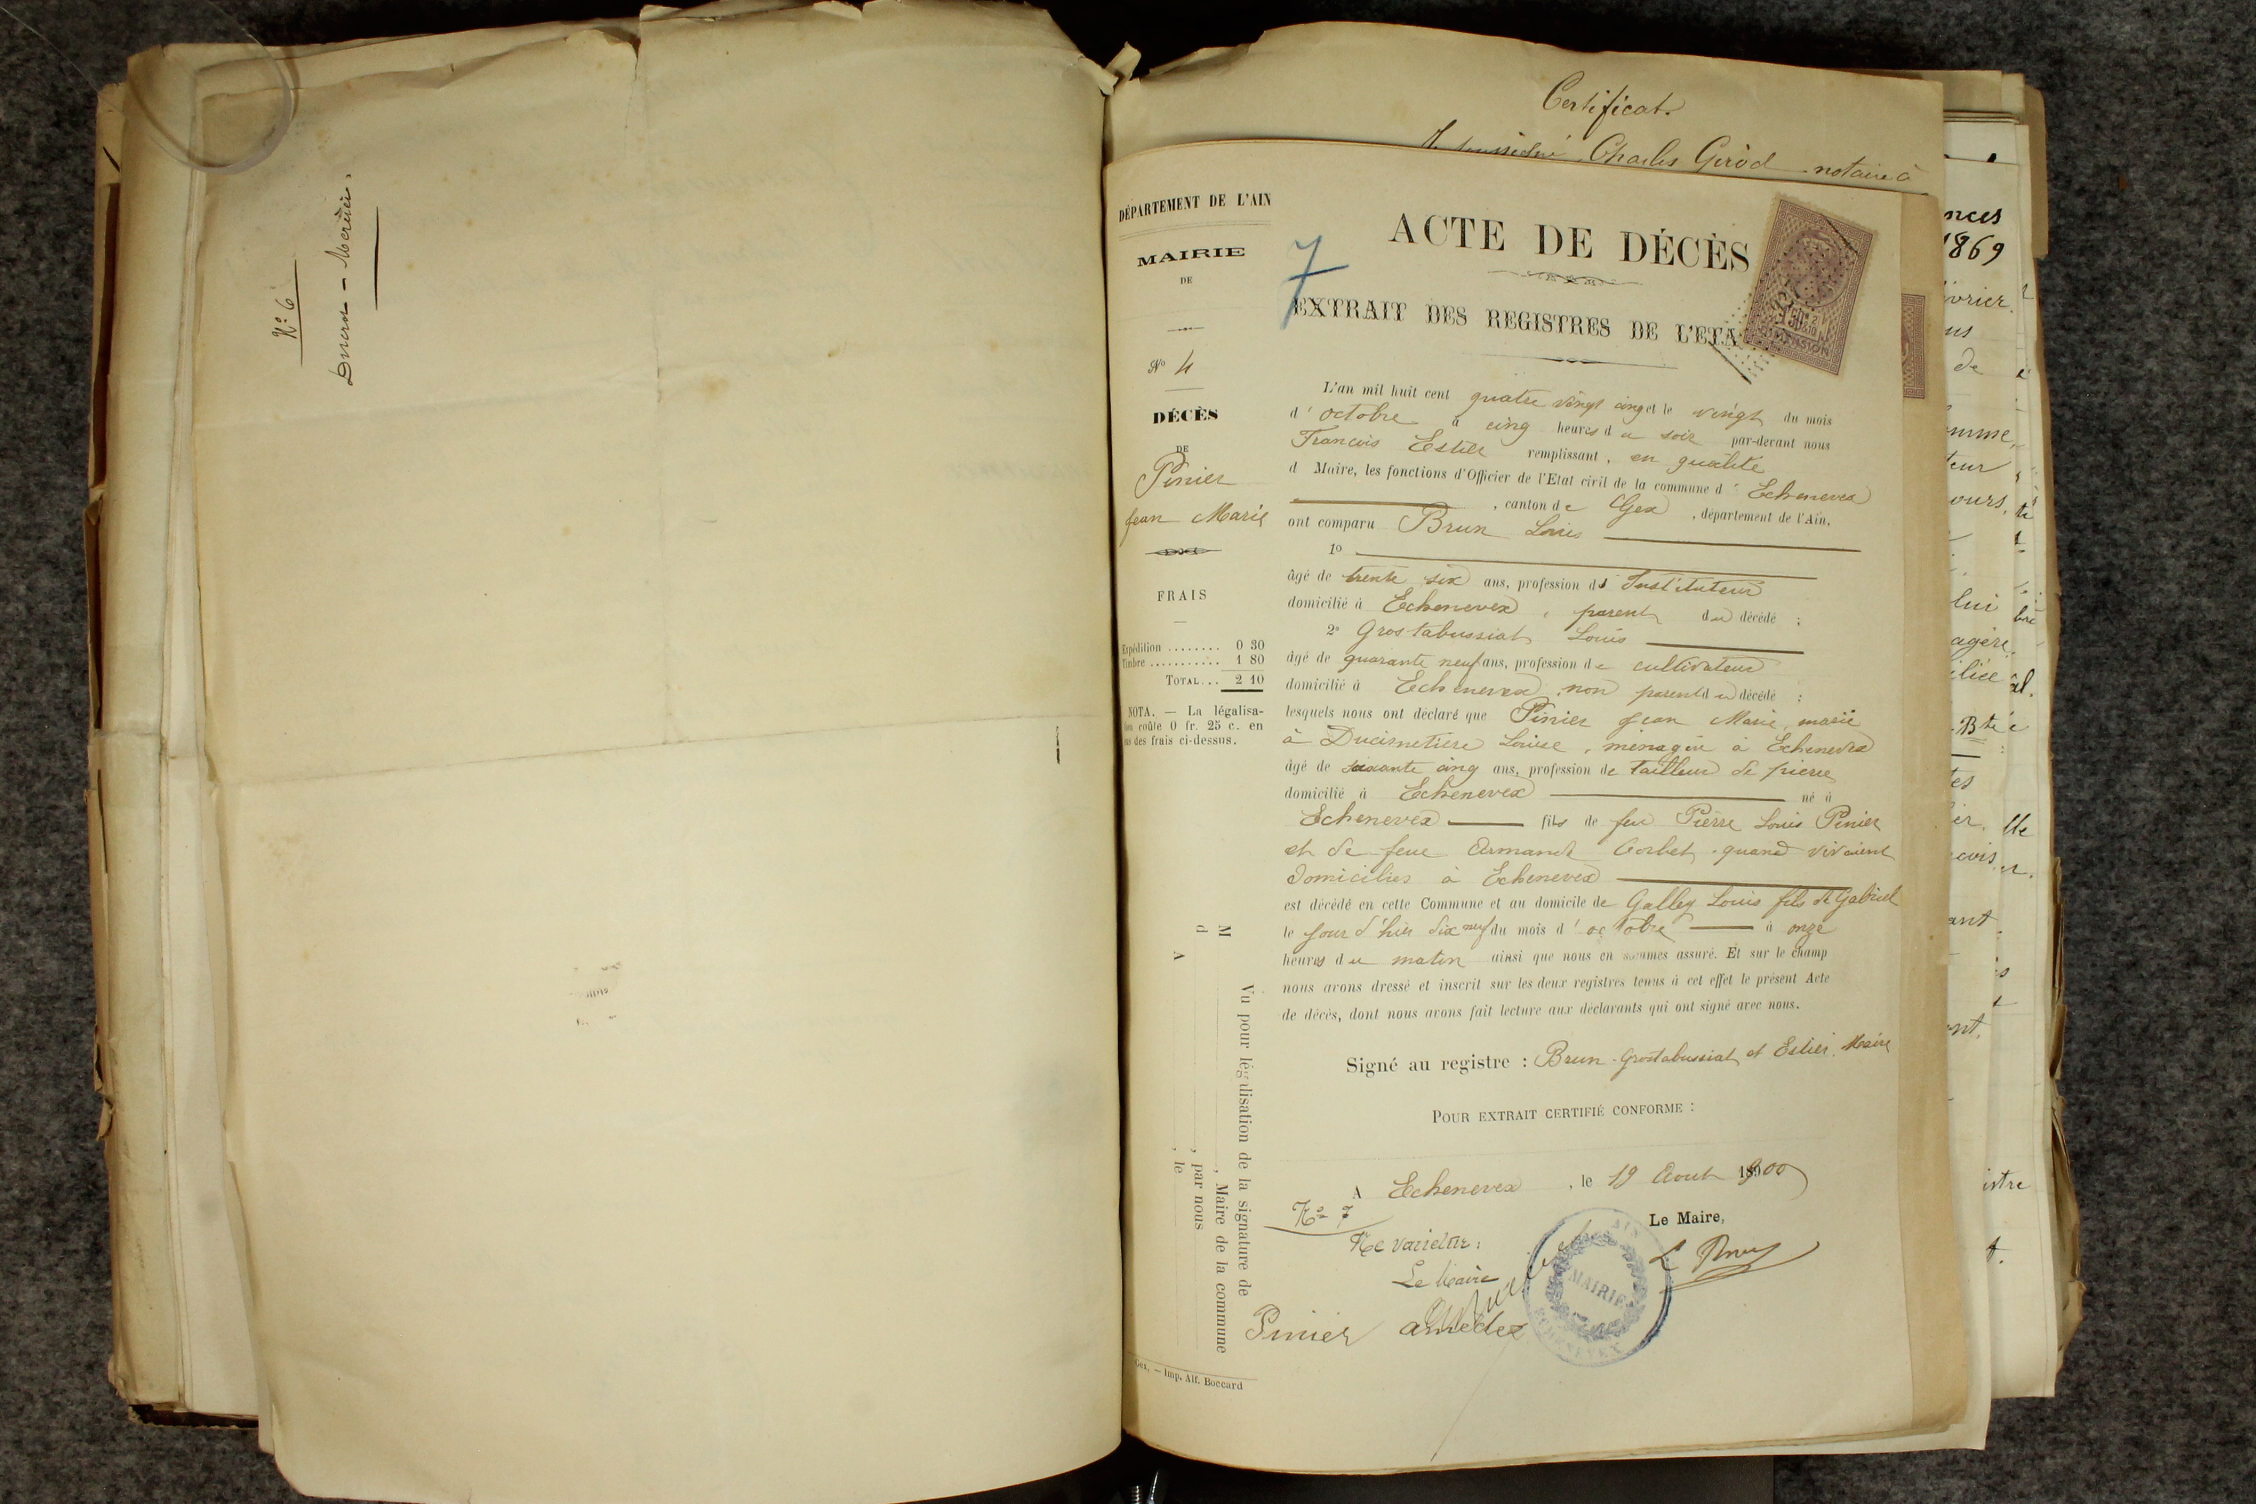 N° 6
Ducros - Mercier.
Certificat.
soussigné Charles Girod notaire à
DÉPARTEMENT DE L'AIN
MAIRIE
DE
N° 4
DÉCÈS
DE
Pinier
Jean Marie
FRAIS
Expédition ........ 0 30
Timbre ........... 1 80
TOTAL... 2 10
NOTA. — La légalisa-
tion coûte 0 fr. 25 c. en
sus des frais ci-dessus.
Vu pour légalisation de la signature de
M , Maire de la commune
d , par nous
A , le
Gex. — Imp. Alf. Boccard
7
ACTE DE DÉCÈS
EXTRAIT DES REGISTRES DE L'ETA
L'an mil huit cent quatre vingt cinq et le vingt du mois
d'octobre à cinq heures du soir par-devant nous
François Estier remplissant, en qualité
d Maire, les fonctions d'Officier de l'Etat civil de la commune d'Echenevex
, canton de Gex, département de l'Ain,
ont comparu Brun Louis
1°
âgé de trente six ans, profession d' Instituteur
domicilié à Echenevex, parent du décédé ;
2° Grostabussiat Louis
âgé de quarante neuf ans, profession de cultivateur
domicilié à Echenevex, non parent du décédé :
lesquels nous ont déclaré que Pinier Jean Marie, marié
à Ducimetière Louise, ménagère à Echenevex
âgé de soixante cinq ans, profession de tailleur de pierre
domicilié à Echenevex né à
Echenevex fils de feu Pierre Louis Pinier
et de feue Armand Corbet quand vivaient
domiciliés à Echenevex
est décédé en cette Commune et au domicile de Galley Louis fils de Gabriel
le jour d'hier dix neuf du mois d'octobre à onze
heures du matin ainsi que nous en sommes assuré. Et sur le champ
nous avons dressé et inscrit sur les deux registres tenus à cet effet le présent Acte
de décès, dont nous avons fait lecture aux déclarants qui ont signé avec nous.
Signé au registre : Brun - Grostabussiat et Estier. Maire
POUR EXTRAIT CERTIFIÉ CONFORME :
A Echenevex, le 19 Aout 1900
N° 7
Ne varietur :
Le Maire
Le Maire,
L Brun
AIN
MAIRIE
ECHENEVEX
Pinier amedez
nces
1869
évrier.
us
de
omme,
teur
ours,
lui
agère,
iliée
Bte
tes
ant
ont.
istre